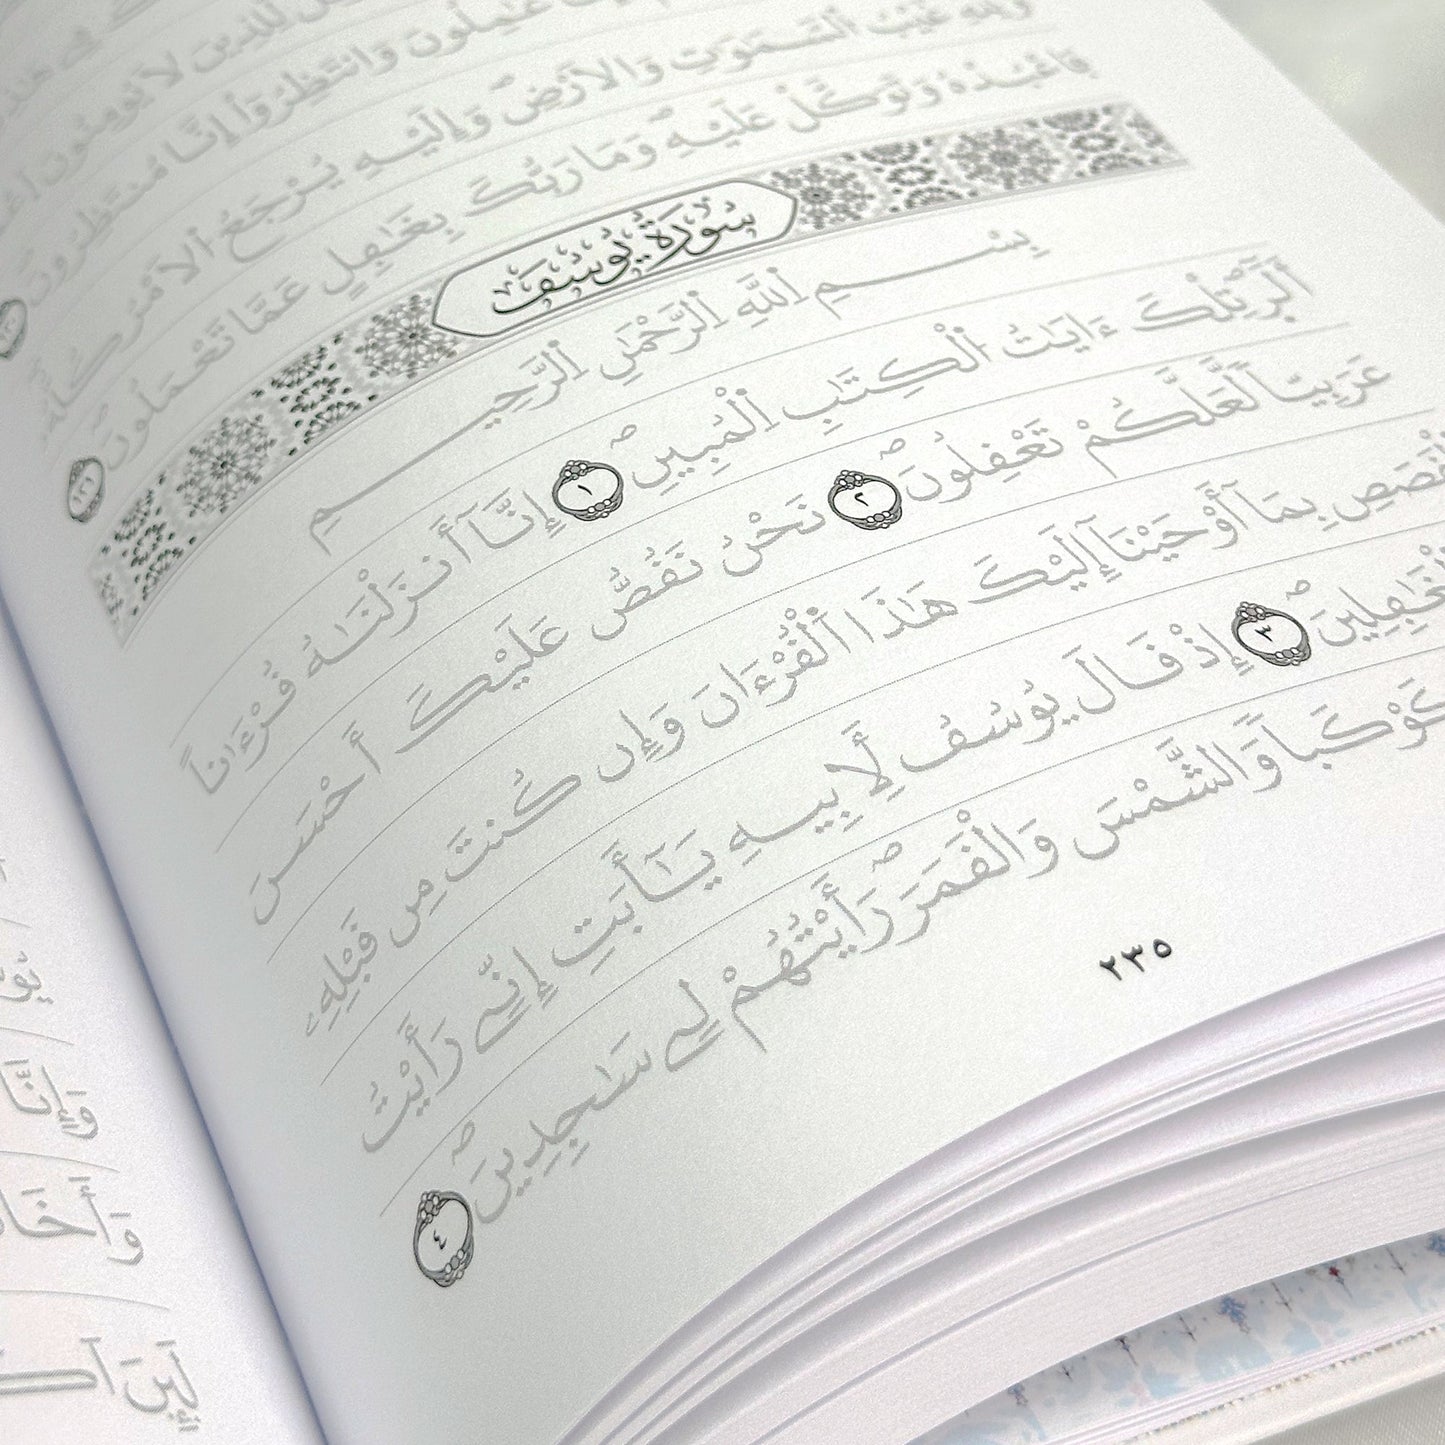 لِلذِينَ لَا يُومِنُونَ
عَٰمِلُونَ وَانتَظِرُوٓاْ إِنَّا مُنتَظِرُونَ
وَلِلهِ غَيْبُ السَّمَٰوَٰتِ وَالَارْضِ وَإِلَيْهِ يُرْجَعُ الَامْرُ كُلُّهُ
فَاعْبُدْهُ وَتَوَكَّلْ عَلَيْهِ وَمَا رَبُّكَ بِغَٰفِلٍ عَمَّا تَعْمَلُونَ ١٢١
سُورَةُ يُوسُفَ
بِسْمِ اِللَّهِ اِلرَّحْمَٰنِ اِلرَّحِيمِ
أَلَٓرۖ تِلْكَ ءَايَٰتُ اُلْكِتَٰبِ اِلْمُبِينِۖ ١ إِنَّآ أَنزَلْنَٰهُ قُرْءَٰناً
عَرَبِيّاً لَّعَلَّكُمْ تَعْقِلُونَۖ ٢ نَحْنُ نَقُصُّ عَلَيْكَ أَحْسَنَ
اَلْقَصَصِ بِمَآ أَوْحَيْنَآ إِلَيْكَ هَٰذَا اَلْقُرْءَانَ وَإِن كُنتَ مِن قَبْلِهِۦ
اَلْغَٰفِلِينَۖ ٣ إِذْ قَالَ يُوسُفُ لِأَبِيهِ يَٰٓأَبَتِ إِنِّے رَأَيْتُ
كَوْكَباً وَالشَّمْسَ وَالْقَمَرَ رَأَيْتُهُمْ لِے سَٰجِدِينَۖ ٤
٢٣٥
وَإِنَّا